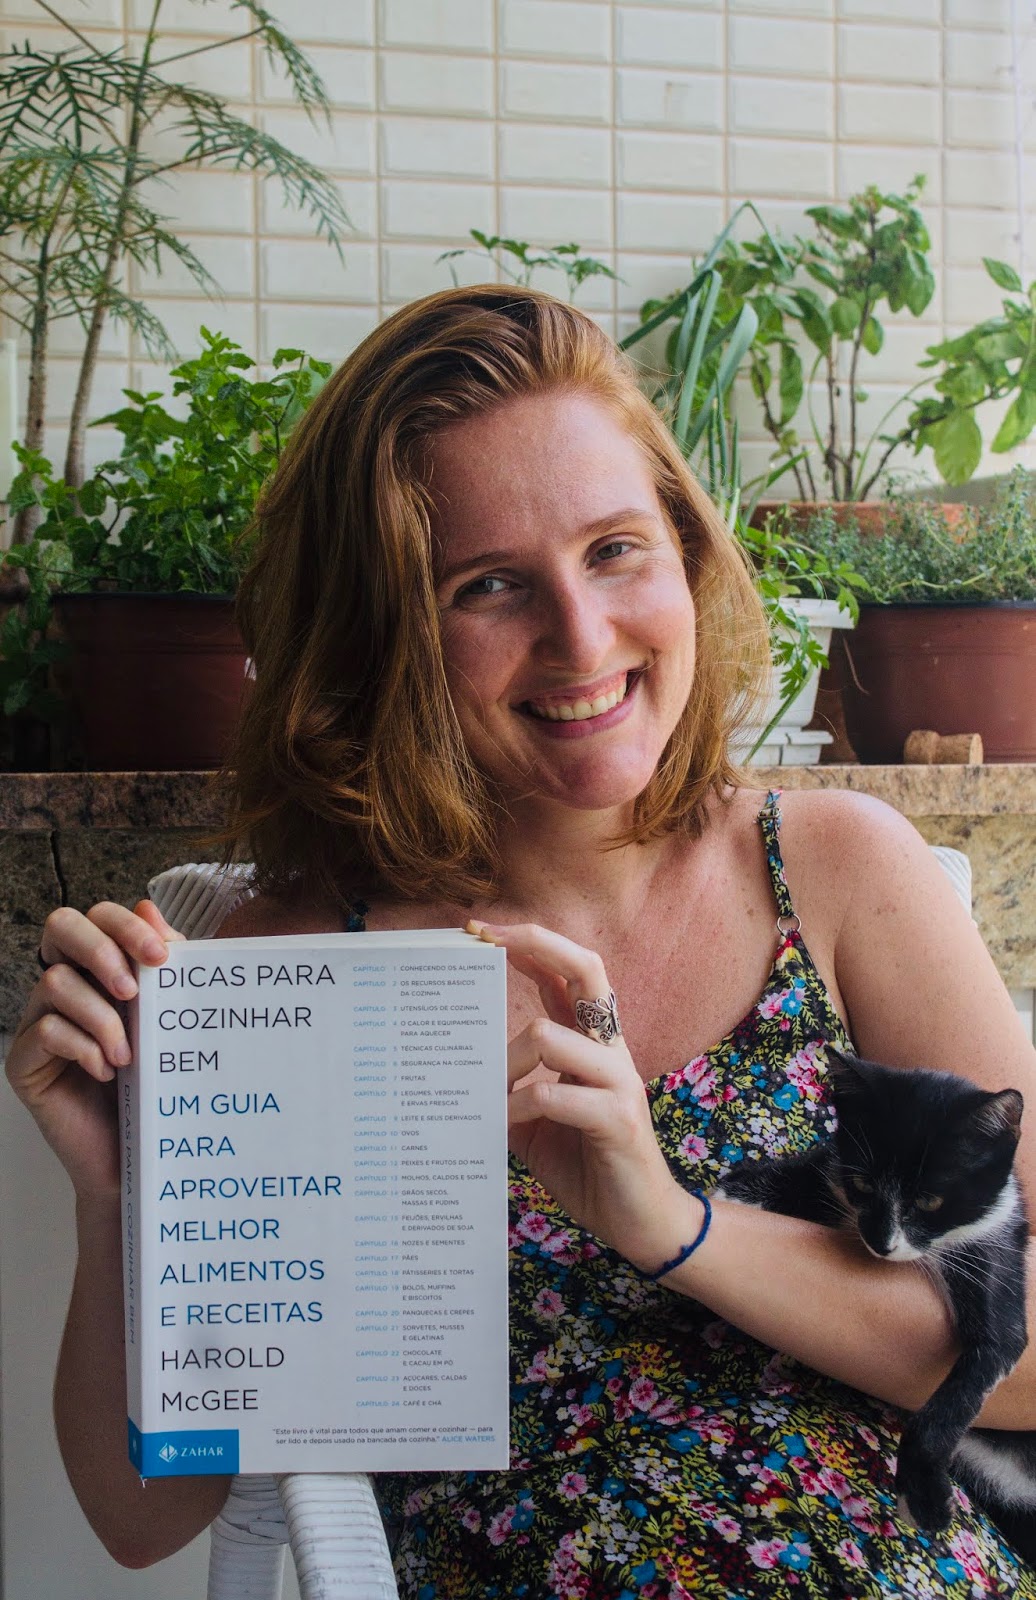 DICAS PARA
COZINHAR
BEM
UM GUIA
PARA
APROVEITAR
MELHOR
ALIMENTOS
E RECEITAS
HAROLD
McGEE
CAPÍTULO 1 CONHECENDO OS ALIMENTOS
CAPÍTULO 2 OS RECURSOS BÁSICOS
DA COZINHA
CAPÍTULO 3 UTENSÍLIOS DE COZINHA
CAPÍTULO 4 O CALOR E EQUIPAMENTOS
PARA AQUECER
CAPÍTULO 5 TÉCNICAS CULINÁRIAS
CAPÍTULO 6 SEGURANÇA NA COZINHA
CAPÍTULO 7 FRUTAS
CAPÍTULO 8 LEGUMES, VERDURAS
E ERVAS FRESCAS
CAPÍTULO 9 LEITE E SEUS DERIVADOS
CAPÍTULO 10 OVOS
CAPÍTULO 11 CARNES
CAPÍTULO 12 PEIXES E FRUTOS DO MAR
CAPÍTULO 13 MOLHOS, CALDOS E SOPAS
CAPÍTULO 14 GRÃOS SECOS,
MASSAS E PUDINS
CAPÍTULO 15 FEIJÕES, ERVILHAS
E DERIVADOS DE SOJA
CAPÍTULO 16 NOZES E SEMENTES
CAPÍTULO 17 PÃES
CAPÍTULO 18 PÂTISSERIES E TORTAS
CAPÍTULO 19 BOLOS, MUFFINS
E BISCOITOS
CAPÍTULO 20 PANQUECAS E CREPES
CAPÍTULO 21 SORVETES, MUSSES
E GELATINAS
CAPÍTULO 22 CHOCOLATE
E CACAU EM PÓ
CAPÍTULO 23 AÇÚCARES, CALDAS
E DOCES
CAPÍTULO 24 CAFÉ E CHÁ
"Este livro é vital para todos que amam comer e cozinhar — para
ser lido e depois usado na bancada da cozinha." ALICE WATERS
ZAHAR
DICAS PARA COZINHAR BEM